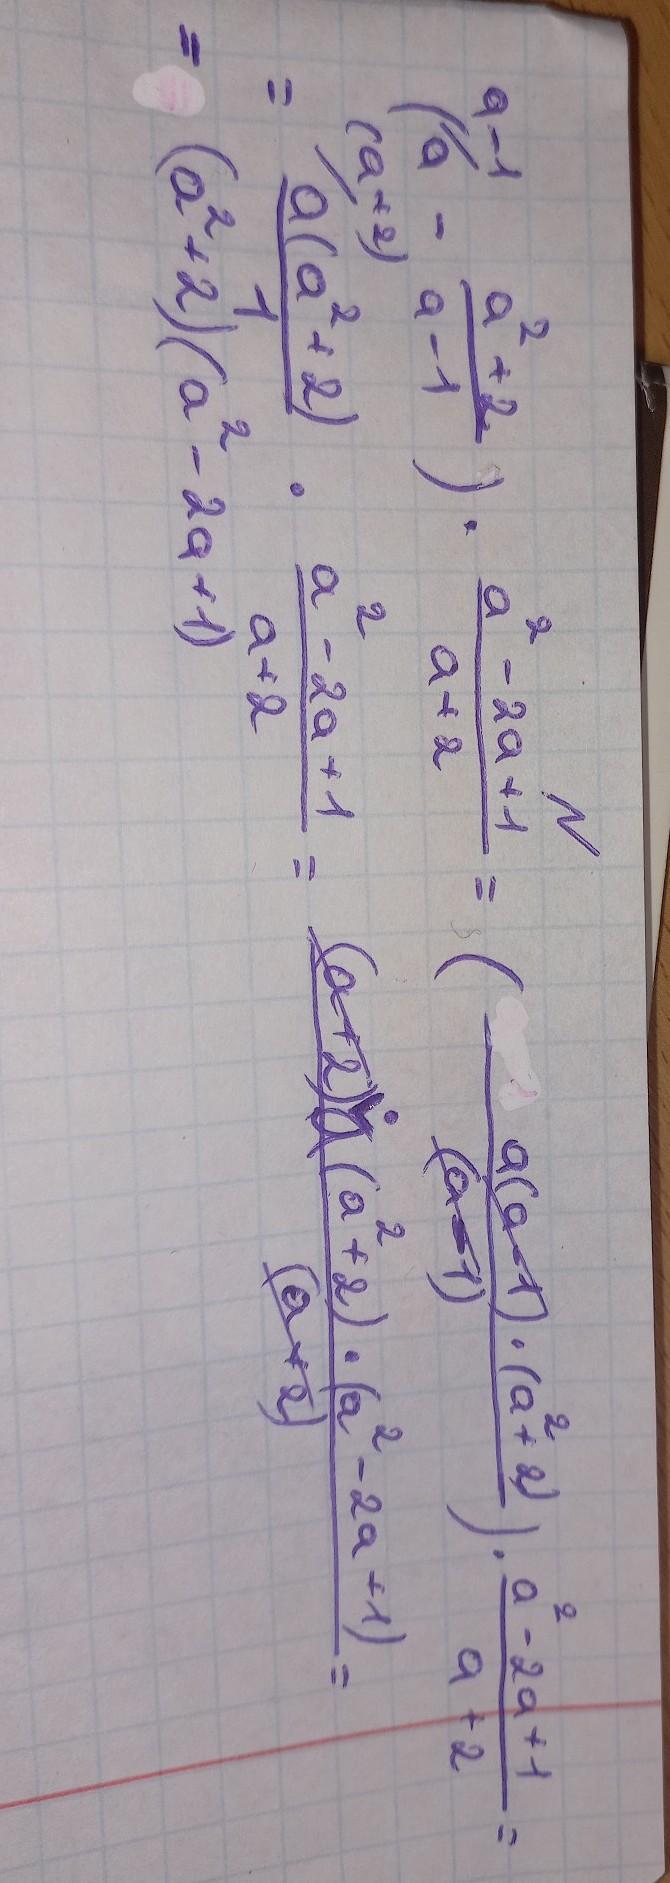 N
a-1
(a - \frac{a^2+2}{a-1}) · \frac{a^2-2a+1}{a+2} = (\frac{a(a-1)·(a^2+2)}{(a-1)}) · \frac{a^2-2a+1}{a+2} =
(a+2)
= \frac{a(a^2+2)}{1} · \frac{a^2-2a+1}{a+2} = \frac{(a+2)·(a^2+2)·(a^2-2a+1)}{(a+2)} =
= (a^2+2)(a^2-2a+1)